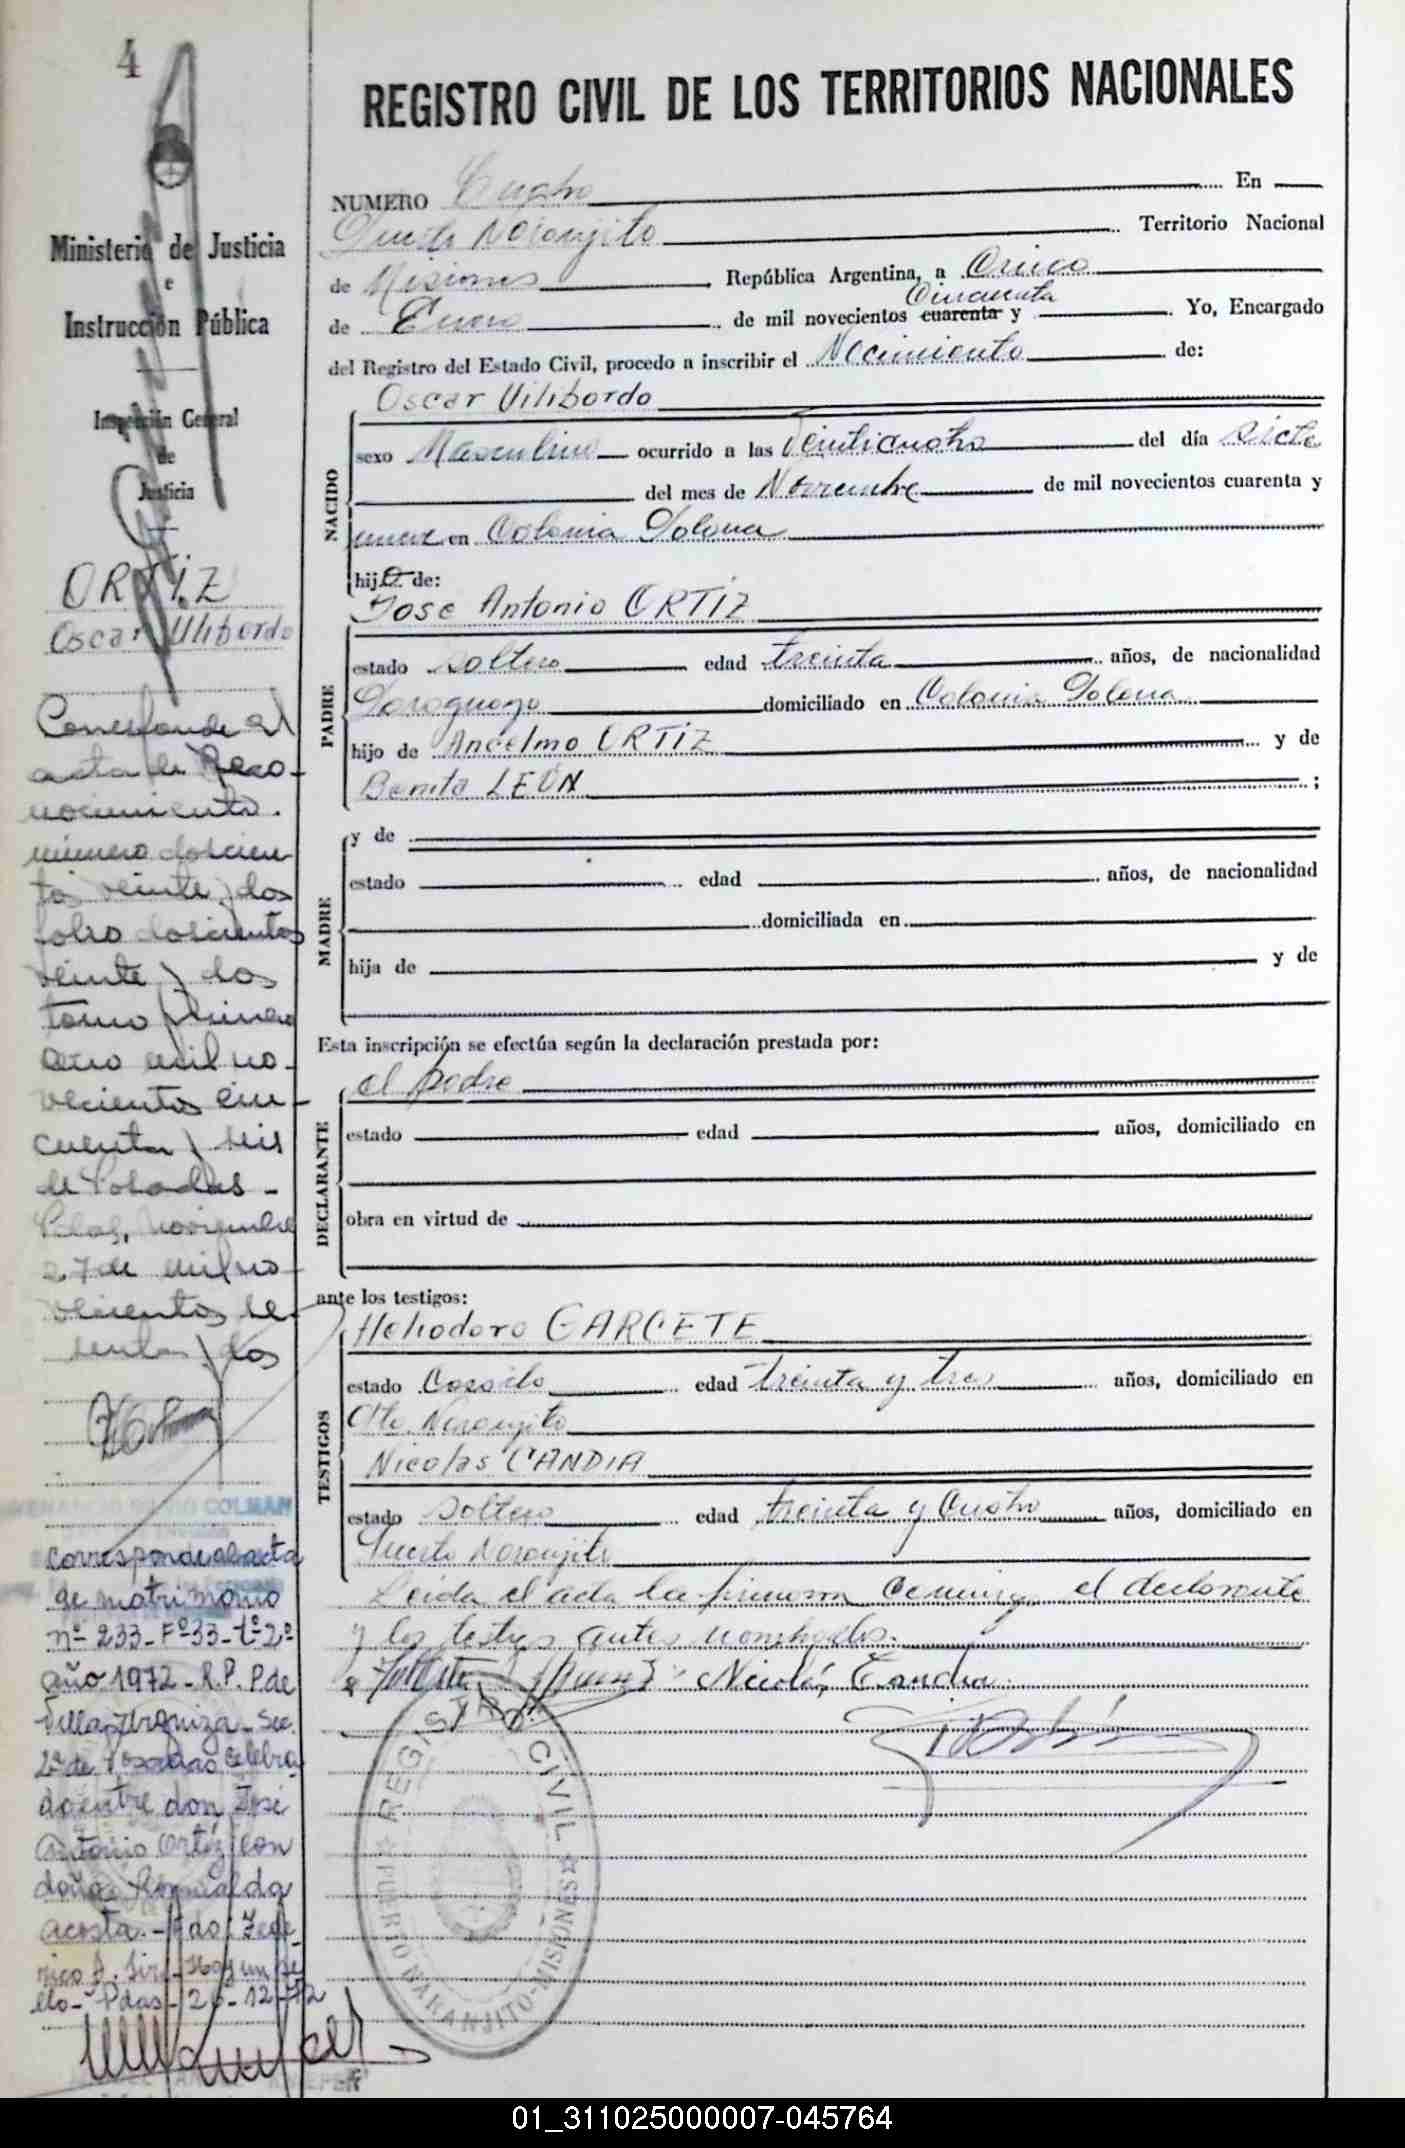 4
Ministerio de Justicia
e
Instrucción Pública
Inspección General
de
Justicia
ORTÍZ
Oscar Vilibordo
Corresponde al
acta de Reco-
nocimiento.
número doscien
tos veinte y dos
folio doscientos
veinte y dos
tomo primero
año mil no-
vecientos cin-
cuenta y seis
de Posadas -
Pdas, noviembre
27 de mil no-
vecientos se-
senta y dos
COLMAN
corresponde al acta
de matrimonio
nº 233 - Fº 33 - tº 2º
año 1972 - R.P. P. de
Villa Urquiza - Sec.
2ª de Posadas celebra
do entre don José
Antonio Ortíz con
doña Romualda
Acosta. - Fdo: Fede-
rico A. Hay un se
llo - Pdas - 26-12-72
REGISTRO CIVIL DE LOS TERRITORIOS NACIONALES
NUMERO Cuatro En
Puerto Naranjito Territorio Nacional
de Misiones República Argentina, a Cinco
Cincuenta
de Enero de mil novecientos cuarenta y Yo, Encargado
del Registro del Estado Civil, procedo a inscribir el Nacimiento de:
Oscar Vilibordo
NACIDO
sexo Masculino ocurrido a las Veinticuatro del día siete
del mes de Noviembre de mil novecientos cuarenta y
nueve en Colonia Polona
hijo de:
PADRE
Jose Antonio ORTIZ
estado soltero edad treinta años, de nacionalidad
Paraguayo domiciliado en Colonia Polona
hijo de Ancelmo ORTIZ y de
Benita LEÓN ;
MADRE
y de
estado edad años, de nacionalidad
domiciliada en
hija de y de
Esta inscripción se efectúa según la declaración prestada por:
DECLARANTE
el padre
estado edad años, domiciliado en
obra en virtud de
ante los testigos:
TESTIGOS
Heliodoro GARCETE
estado Casado edad treinta y tres años, domiciliado en
Pto. Naranjito
Nicolas CANDIA
estado soltero edad treinta y Cuatro años, domiciliado en
Puerto Naranjito
Leida el acta la firmaron Conmigo el declarante
y los testigos antes nombrados.
Nicolás Candia
REGISTRO CIVIL
PUERTO NARANJITO-MISIONES
01_311025000007-045764